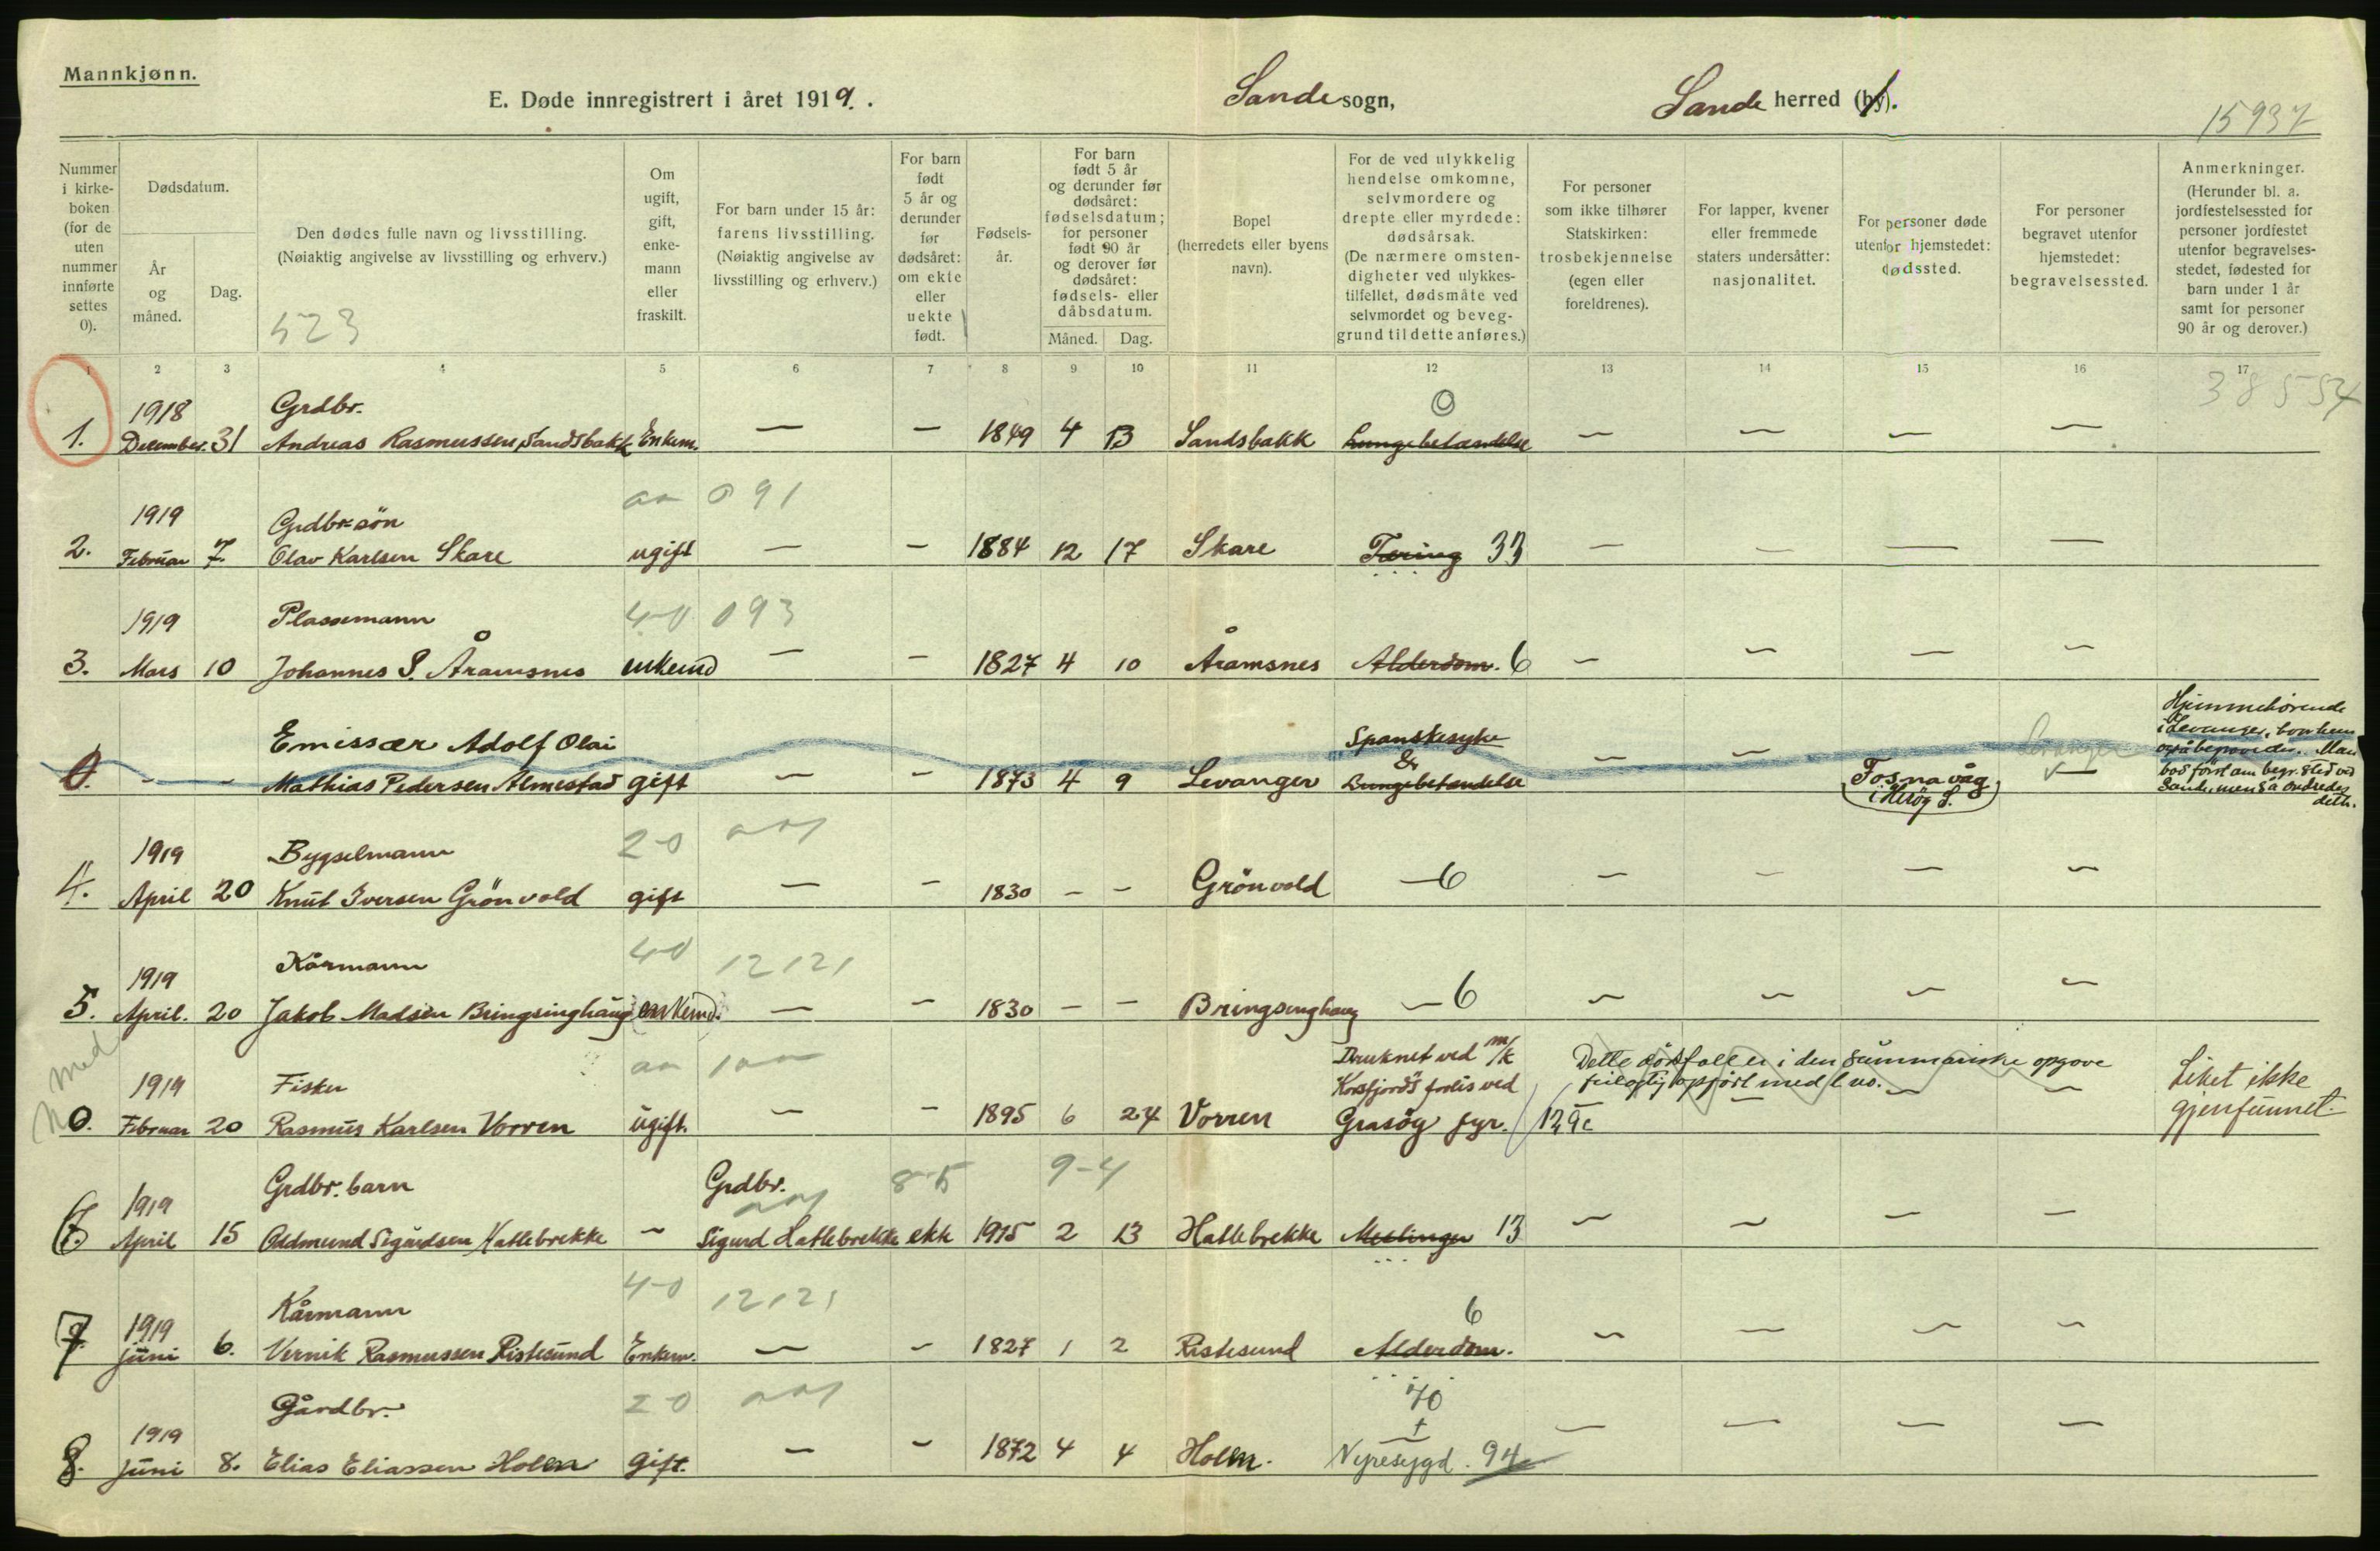 Mannkjønn.
E. Døde innregistrert i året 1919. .
Sande sogn,
Sande herred (by).
15937
Nummer i kirkeboken (for de uten nummer innførte settes 0).
Dødsdatum.
År og måned.
Dag.
Den dødes fulle navn og livsstilling. (Nøiaktig angivelse av livsstilling og erhverv.)
523
Om ugift, gift, enkemann eller fraskilt.
For barn under 15 år: farens livsstilling. (Nøiaktig angivelse av livsstilling og erhverv.)
For barn født 5 år og derunder før dødsåret: om ekte eller uekte født.
Fødselsår.
For barn født 5 år og derunder før dødsåret: fødselsdatum; for personer født 90 år og derover før dødsåret: fødsels- eller dåbsdatum.
Måned. Dag.
Bopel (herredets eller byens navn).
For de ved ulykkelig hendelse omkomne, selvmordere og drepte eller myrdede: dødsårsak. (De nærmere omstendigheter ved ulykkestilfellet, dødsmåte ved selvmordet og beveggrund til dette anføres.)
For personer som ikke tilhører Statskirken: trosbekjennelse (egen eller foreldrenes).
For lapper, kvener eller fremmede staters undersåtter: nasjonalitet.
For personer døde utenfor hjemstedet: dødssted.
For personer begravet utenfor hjemstedet: begravelsessted.
Anmerkninger. (Herunder bl. a. jordfestelsessted for personer jordfestet utenfor begravelsesstedet, fødested for barn under 1 år samt for personer 90 år og derover.)
1 2 3 4 5 6 7 8 9 10 11 12 13 14 15 16 17
38554
1918 Grdbr. 0
1. December. 31 Andreas Rasmussen Sandsbakk Enkem. — — 1849 4 13 Sandsbakk Lungebetændelse — — — —
091
1919 Grdbr.søn
2. Februar 7. Olav Karlsen Skare ugift — — 1884 12 17 Skare Tæring 33 — — — —
1919 Plassemann 4-0 093
3. Mars 10 Johannes P. Åramsnes enkemd — — 1827 4 10 Åramsnes Alderdom. 6 — — — —
Emissær Adolf Olai Spanskesyke
0. - - Mathias Pedersen Almestad gift — — 1873 4 9 Levanger & Lungebetændelse — — Fosnavåg i Herøy S. —
Hjemmehørende i Levanger, bor hun også begravedes. Man bad først om begr. sted ved Sande, men så endredes dette.
1919 Bygselmann 2-0
4. April 20 Knut Iversen Grönvold gift — — 1830 - - Grönvold — 6 — — — —
1919 Kårmann 4-0 12121
5. April. 20 Jakob Madsen Bringsinghaug enkemd. — — 1830 - - Bringsinghaug — 6 — — — —
Med
1919 Fisker Druknet ved m/k Korsfjord's forlis ved
0. Februar 20 Rasmus Karlsen Vorren ugift. — — 1895 6 24 Vorren Grasøy fyr. — — —
Dette dödsfall er i den summariske opgave feilagtig opført med l no.
Liket ikke gjenfunnet.
1919 Grdbr. barn Grdbr. 8-5 9-4
6. April 15 Oddmund Sigurdsen Hatlebrekke — Sigurd Hatlebrekke ekk 1915 2 13 Hatlebrekke Meslinger 13 — — — —
1919 Kårmann 4-0 12121 6
7. Juni 6. Vernik Rasmussen Ristesund Enkem. — — 1827 1 2 Ristesund Alderdom. — — — —
1919 Gårdbr. 20 70
8. Juni 8. Elias Eliassen Holen gift. — — 1872 4 4 Holen. Nyresygd. 94 — — — —